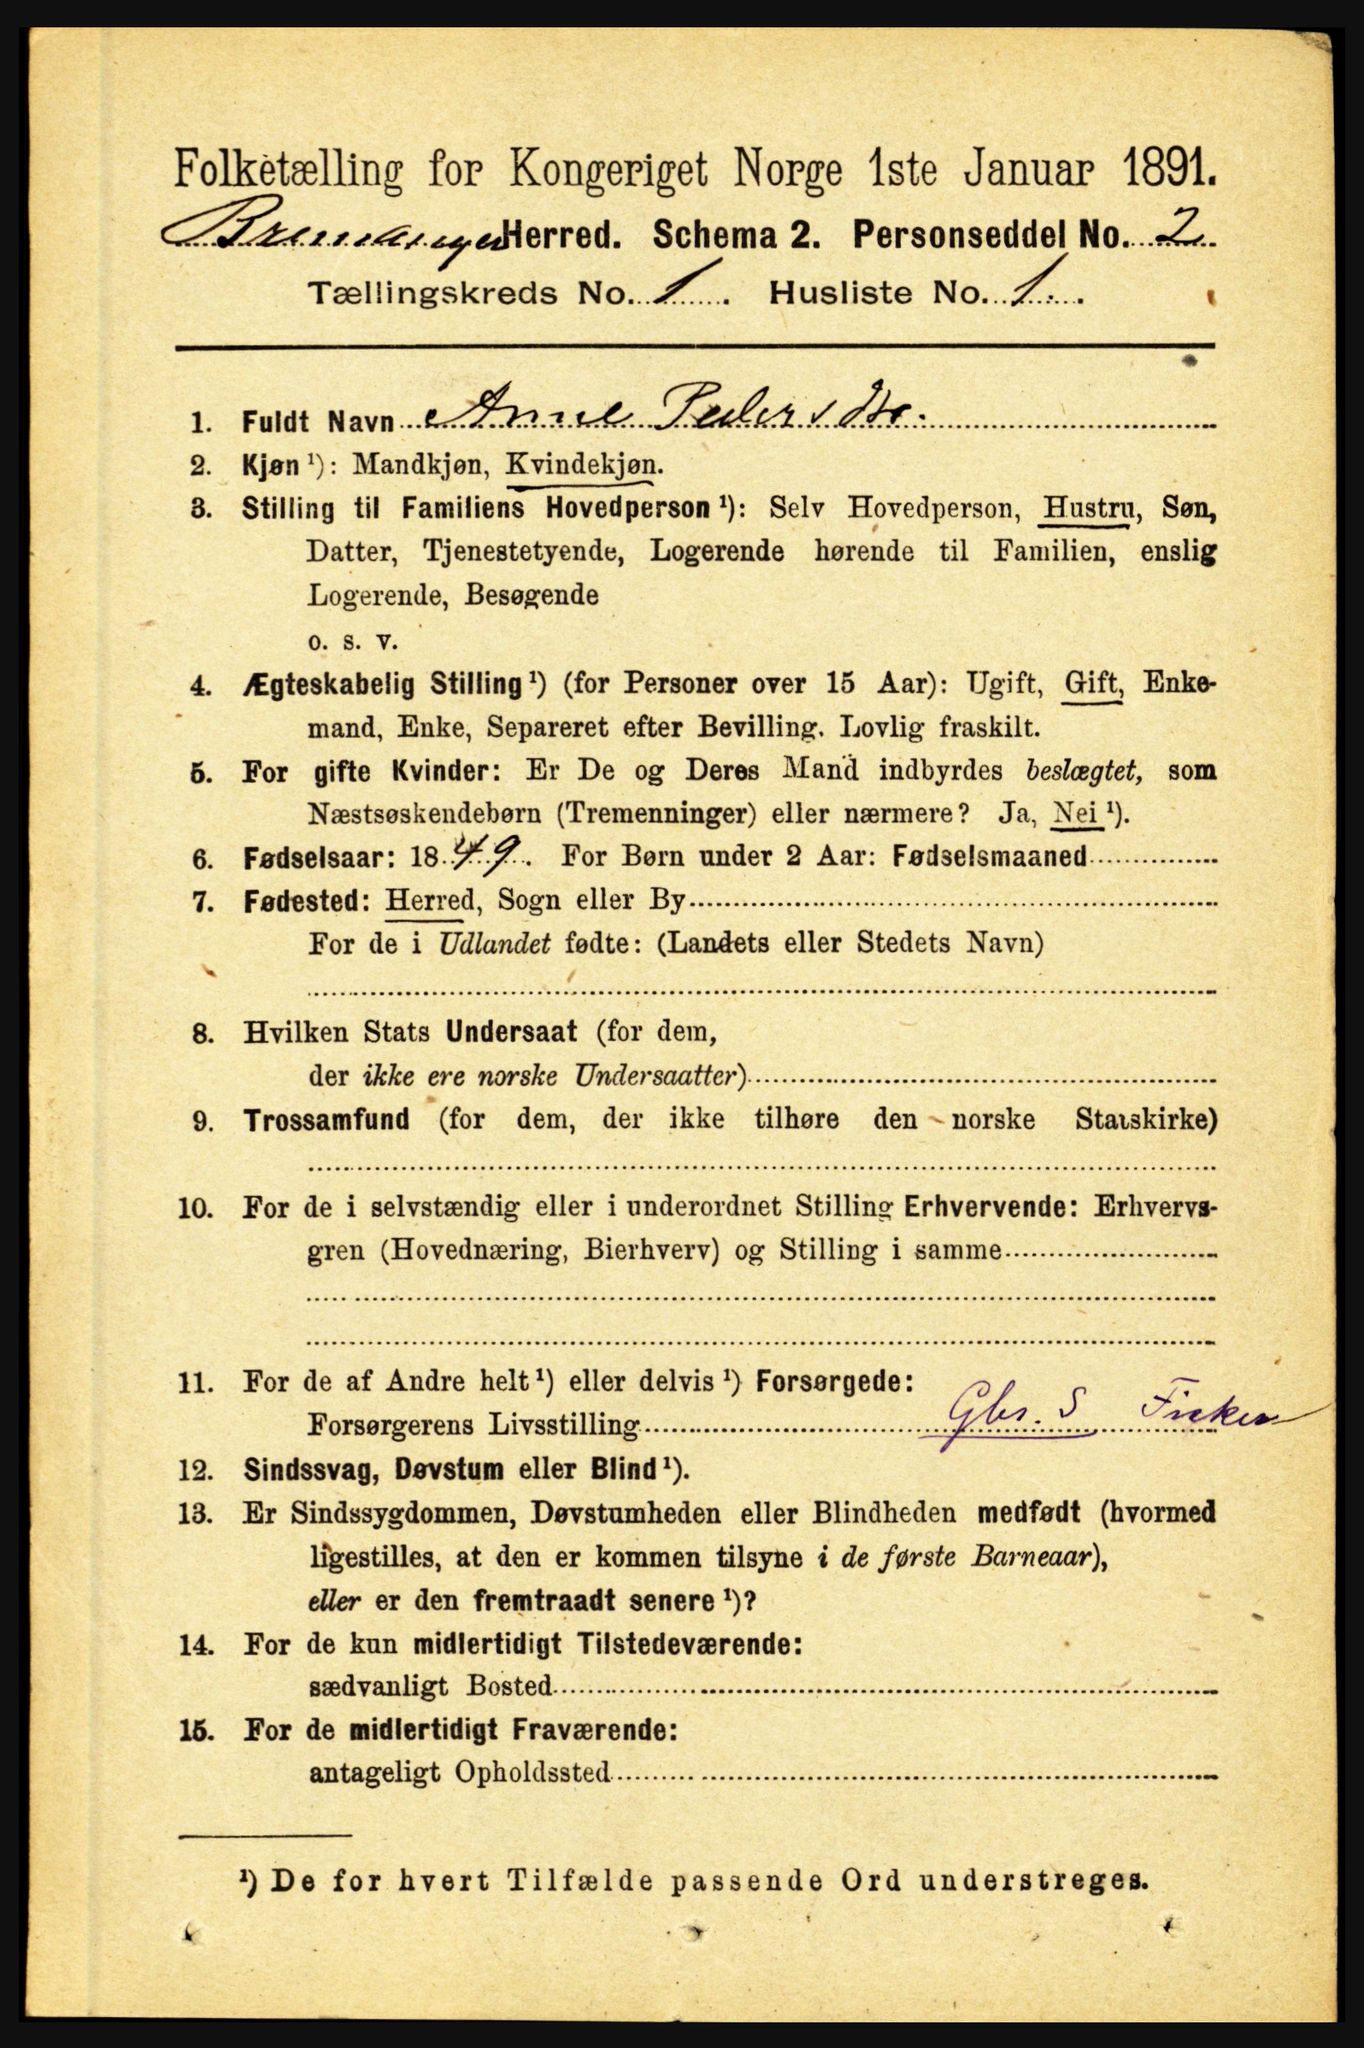 Folketælling for Kongeriget Norge 1ste Januar 1891.
Bremanger Herred. Schema 2. Personseddel No. 2
Tællingskreds No. 1. Husliste No. 1.
1. Fuldt Navn Anne Peders Dtr.
2. Kjøn ¹): Mandkjøn, Kvindekjøn.
3. Stilling til Familiens Hovedperson ¹): Selv Hovedperson, Hustru, Søn,
Datter, Tjenestetyende, Logerende hørende til Familien, enslig
Logerende, Besøgende
o. s. v.
4. Ægteskabelig Stilling ¹) (for Personer over 15 Aar): Ugift, Gift, Enke-
mand, Enke, Separeret efter Bevilling. Lovlig fraskilt.
5. For gifte Kvinder: Er De og Deres Mand indbyrdes beslægtet, som
Næstsøskendebørn (Tremenninger) eller nærmere? Ja, Nei ¹).
6. Fødselsaar: 1849. For Børn under 2 Aar: Fødselsmaaned
7. Fødested: Herred, Sogn eller By
For de i Udlandet fødte: (Landets eller Stedets Navn)
8. Hvilken Stats Undersaat (for dem,
der ikke ere norske Undersaatter)
9. Trossamfund (for dem, der ikke tilhøre den norske Statskirke)
10. For de i selvstændig eller i underordnet Stilling Erhvervende: Erhvervs-
gren (Hovednæring, Bierhverv) og Stilling i samme
11. For de af Andre helt ¹) eller delvis ¹) Forsørgede:
Forsørgerens Livsstilling Gbr. S Fisker
12. Sindssvag, Døvstum eller Blind ¹).
13. Er Sindssygdommen, Døvstumheden eller Blindheden medfødt (hvormed
ligestilles, at den er kommen tilsyne i de første Barneaar),
eller er den fremtraadt senere ¹)?
14. For de kun midlertidigt Tilstedeværende:
sædvanligt Bosted
15. For de midlertidigt Fraværende:
antageligt Opholdssted
¹) De for hvert Tilfælde passende Ord understreges.